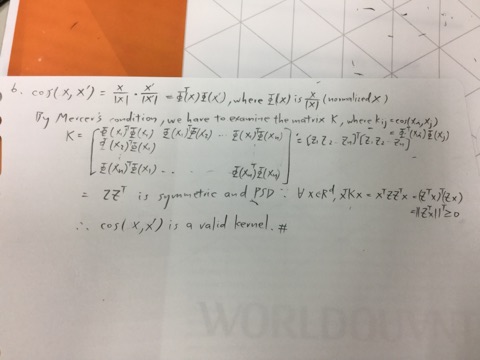 6. cos(x, x') = x/|x| · x'/|x'| = Φᵀ(x)Φ(x'), where Φ(x) is x/|x| (normalized x)
By Mercer's condition, we have to examine the matrix K, where kij = cos(xi, xj)
= Φᵀ(xi)Φ(xj)
K = [Φ(x1)ᵀΦ(x1) Φ(x1)ᵀΦ(x2) ... Φ(x1)ᵀΦ(xn)] = [z1 z2 ... zn]ᵀ[z1 z2 ... zn]
Φ(x2)ᵀΦ(x1)
Φ(xn)ᵀΦ(x1) ... Φ(xn)ᵀΦ(xn)
= ZZᵀ is symmetric and PSD ∵ ∀x∈Rᵈ, xᵀKx = xᵀZZᵀx = (Zᵀx)ᵀ(Zᵀx)
= ||Zᵀx||² ≥ 0
∴ cos(x, x') is a valid kernel. #